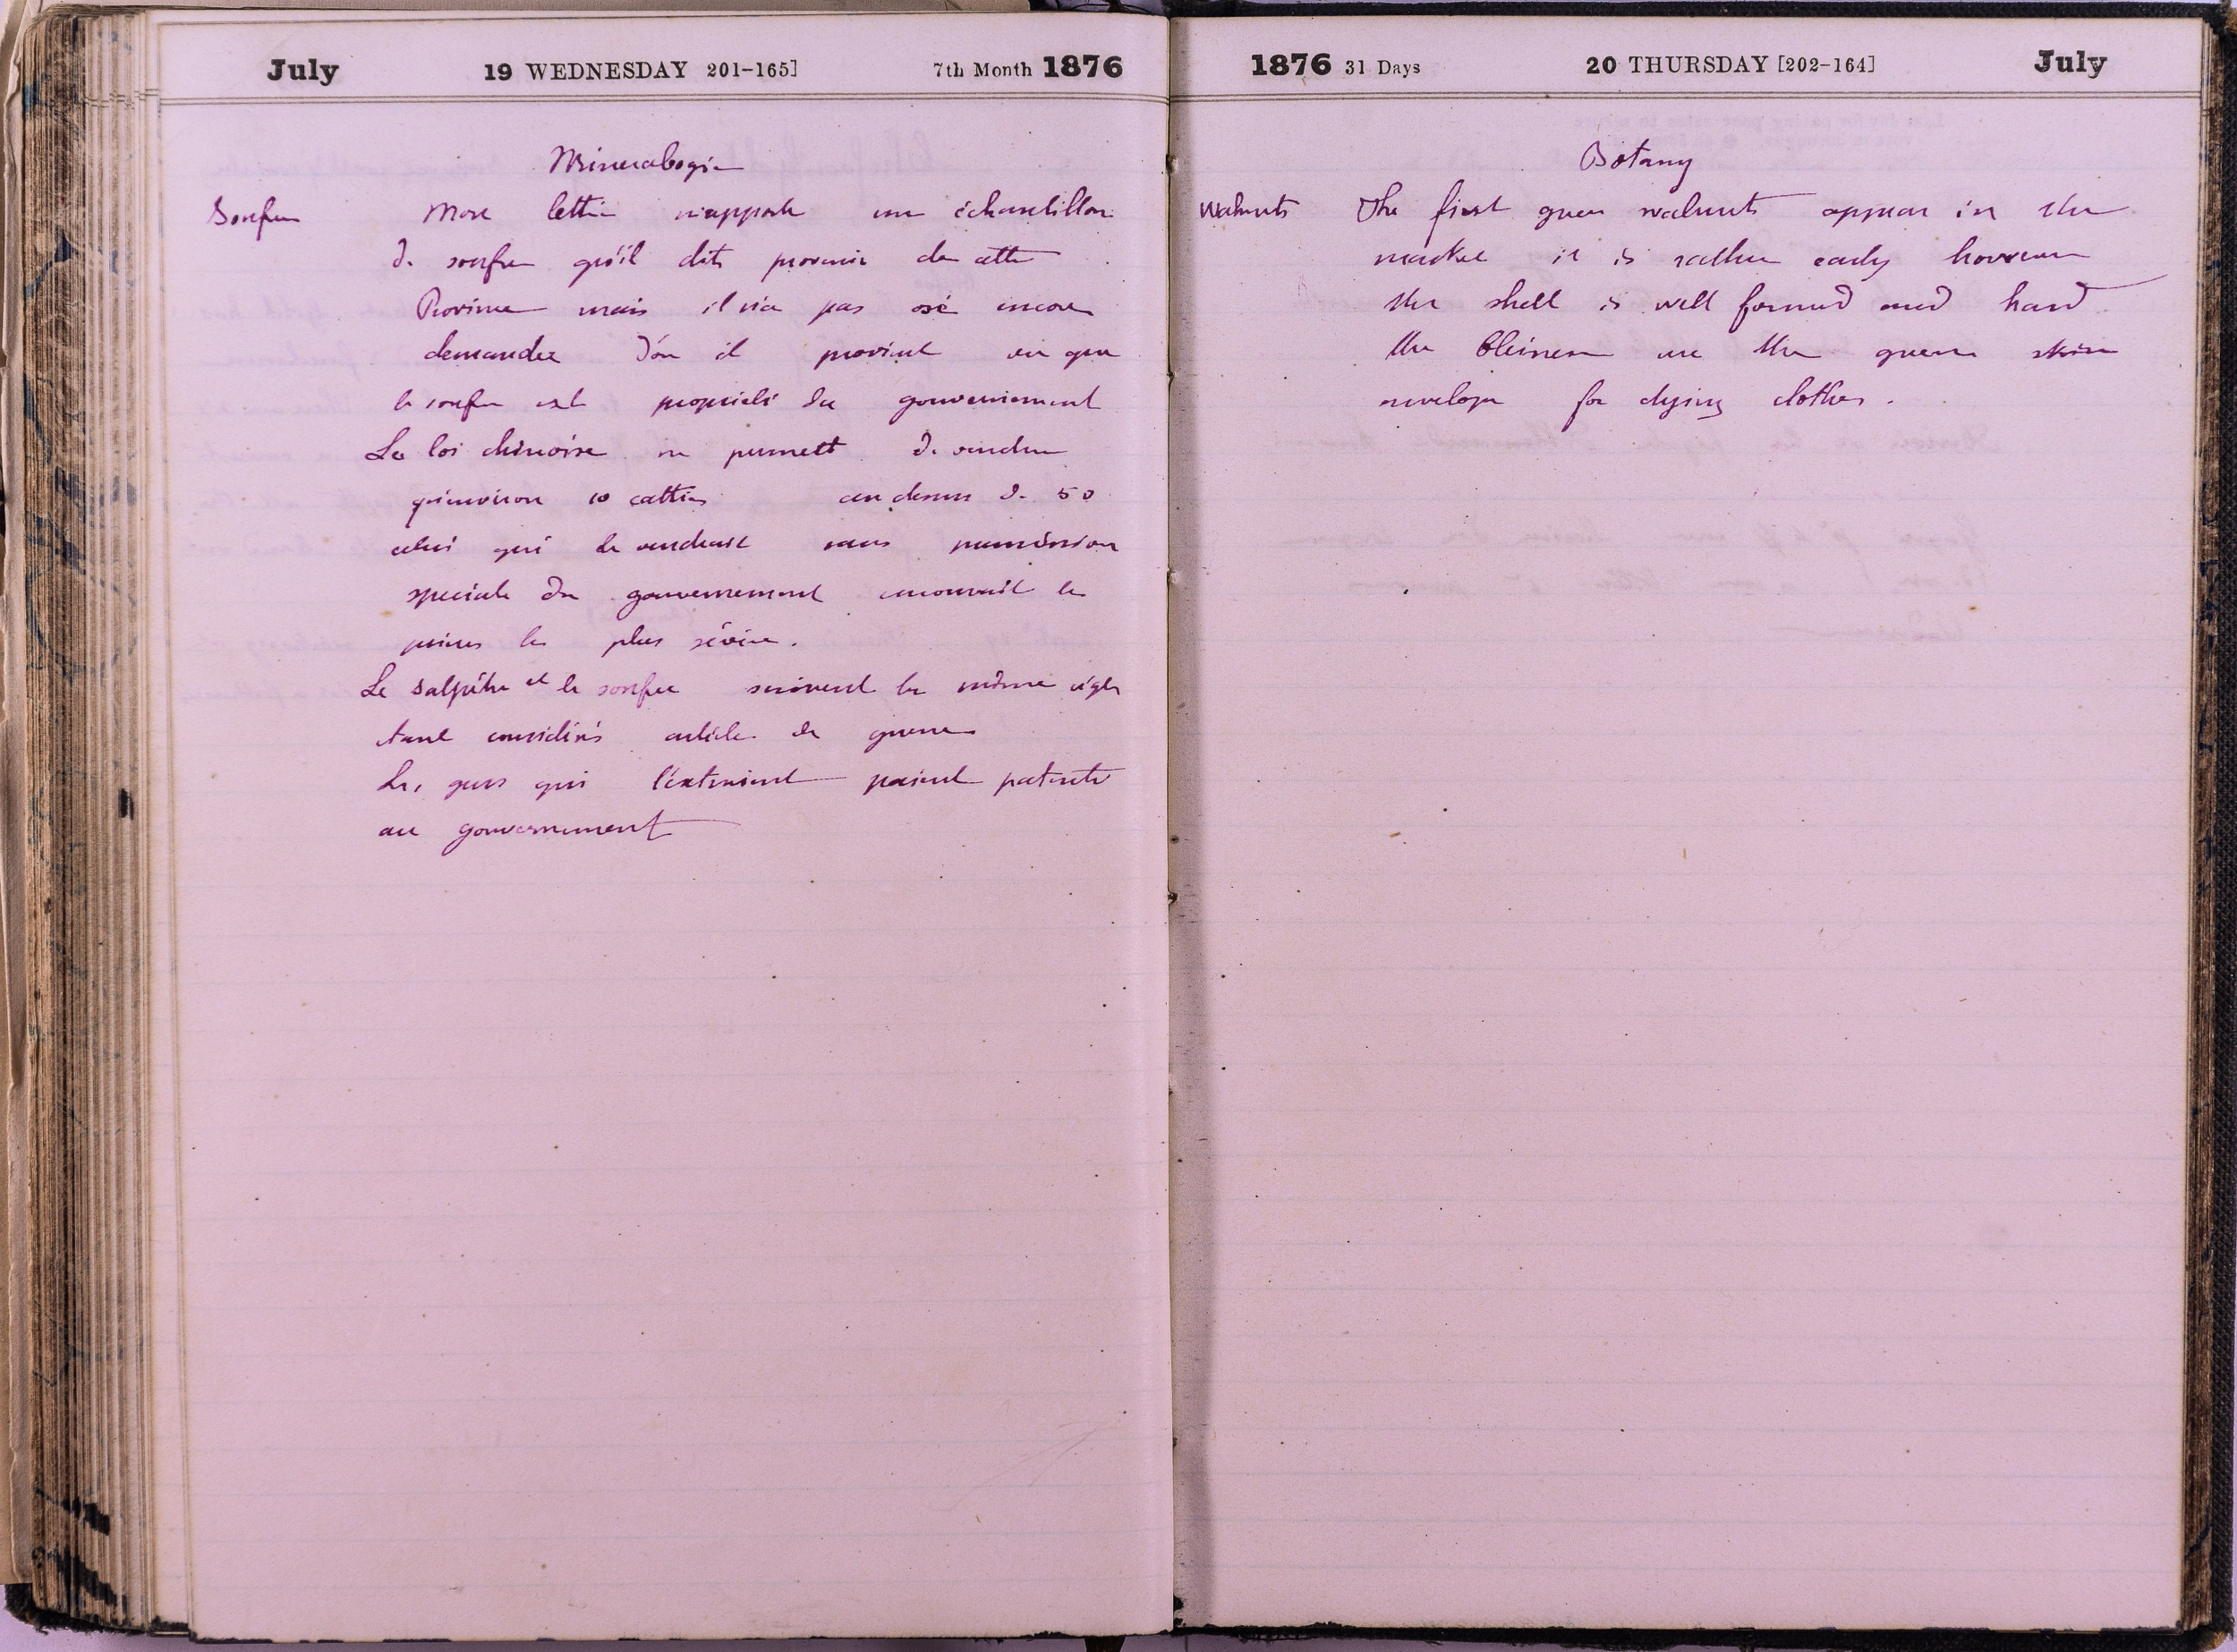 July 19 WEDNESDAY 201-165] 7th Month 1876
Mineralogie
Soufre Mon lettré m'apporte un échantillon
de soufre qu'il dit provenir de cette
Province mais il n'a pas osé encore
demander d'ou il provient vu que
le soufre est propriété du gouvernement
La loi chinoise ne permett de vendre
qu'environ 10 catties au dessus de 50
celui qui le vendrait sans permission
speciale du gouvernement encourrait les
peines les plus sévère.
Le Salpêtre et le soufre suivent la même règle
étant considérés article de guerre
Les gens qui l'extraient paient patente
au gouvernement
1876 31 Days 20 THURSDAY [202-164] July
Botany
Walnuts The first green walnuts appear in the
market it is rather early however
the shell is well formed and hard
the Chinese use the green skin
envelope for dying clothes.